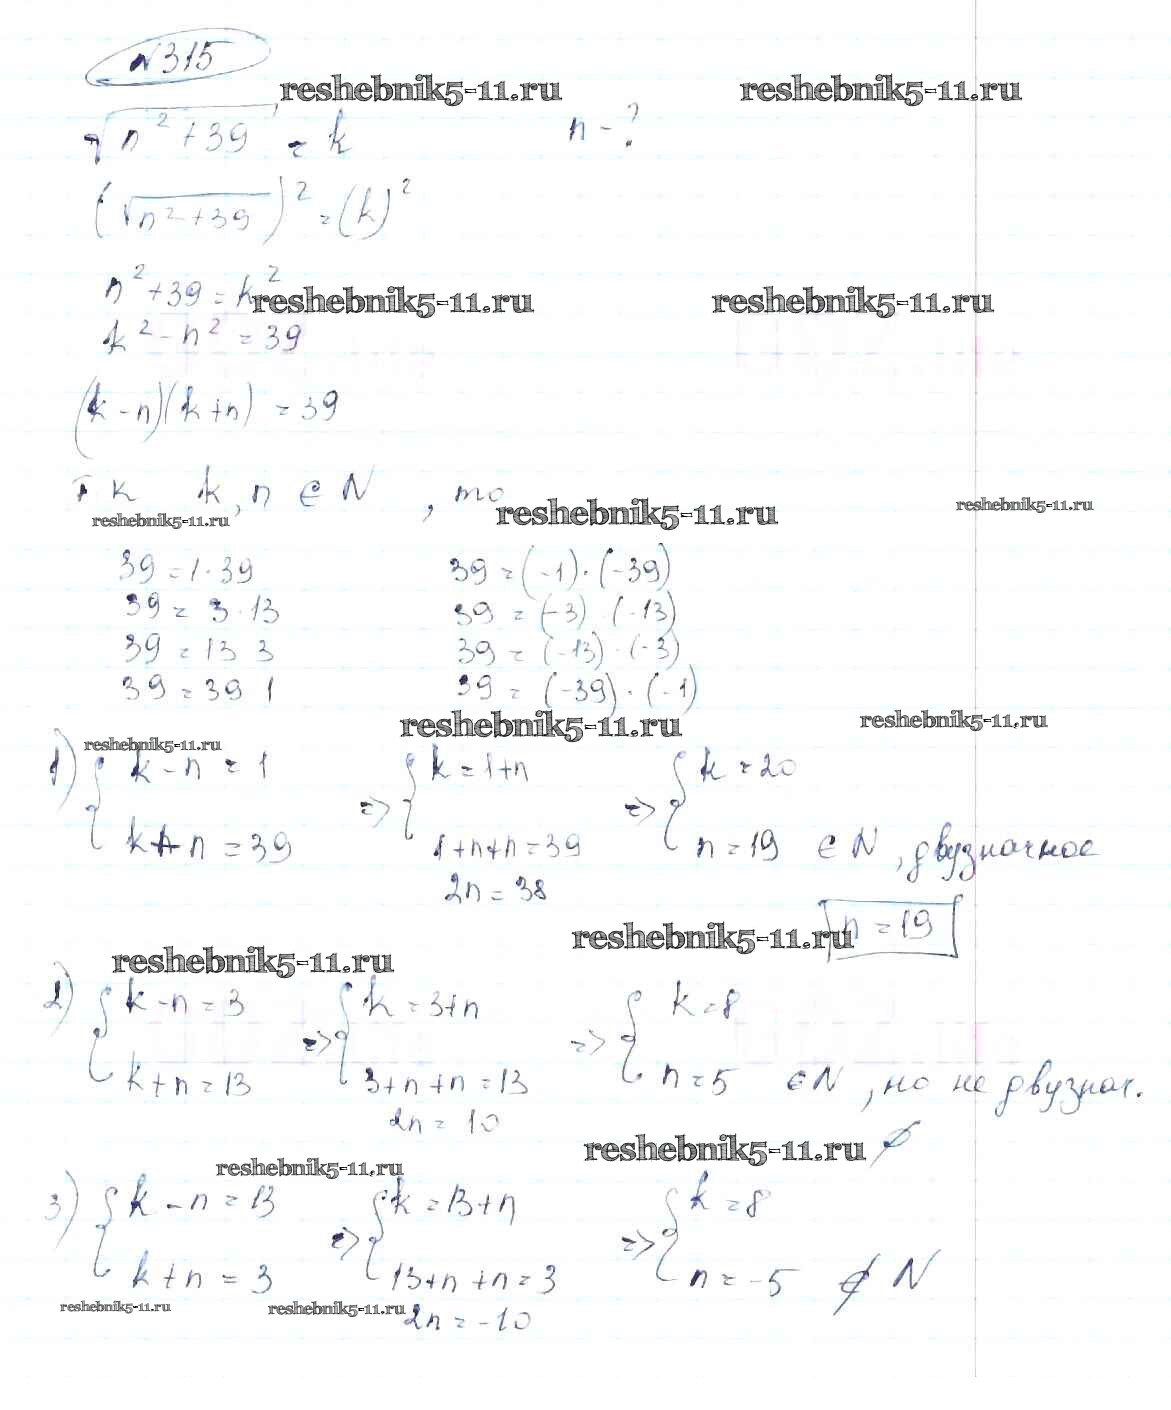 №315
reshebnik5-11.ru reshebnik5-11.ru
√(n²+39) = k n - ?
(√(n²+39))² = (k)²
n²+39 = k²
reshebnik5-11.ru reshebnik5-11.ru
k² - n² = 39
(k-n)(k+n) = 39
т к k, n ∈ N , то
reshebnik5-11.ru reshebnik5-11.ru reshebnik5-11.ru
39 = 1·39 39 = (-1)·(-39)
39 = 3·13 39 = (-3)·(-13)
39 = 13 3 39 = (-13)·(-3)
39 = 39 1 39 = (-39)·(-1)
reshebnik5-11.ru reshebnik5-11.ru reshebnik5-11.ru
1) { k-n = 1 => { k = 1+n => { k = 20
k+n = 39 1+n+n = 39 n = 19 ∈ N, двузначное
2n = 38
n = 19
reshebnik5-11.ru reshebnik5-11.ru
2) { k-n = 3 => { k = 3+n => { k = 8
k+n = 13 3+n+n = 13 n = 5 ∈ N, но не двузнач.
2n = 10
reshebnik5-11.ru reshebnik5-11.ru ∅
3) { k-n = 13 => { k = 13+n => { k = 8
k+n = 3 13+n+n = 3 n = -5 ∉ N
reshebnik5-11.ru reshebnik5-11.ru
2n = -10